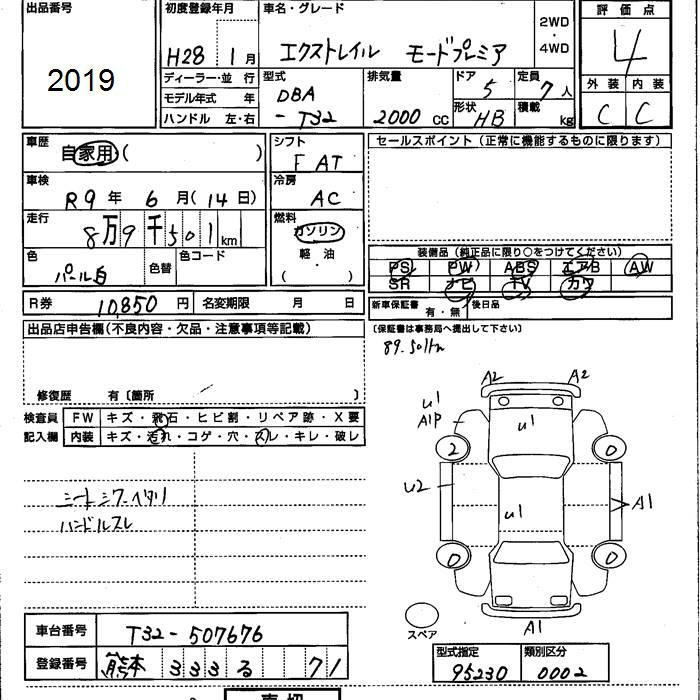 出品番号
2019
初度登録年月
H28 1月
車名・グレード
エクストレイル モードプレミア
2WD
・
4WD
評価点
4
外装 内装
C C
ディーラー・並行
モデル年式 年
ハンドル 左・右
型式
DBA
- T32
排気量
2000 cc
ドア 5
形状 HB
定員 7人
積載 kg
車歴
自家用 ( )
車検
R9年 6月(14日)
走行
8万9千501km
色
パール白
色替
色コード
シフト
F AT
冷房
AC
燃料
ガソリン
軽・油
( )
セールスポイント(正常に機能するものに限ります)
装備品(純正品に限り○をつけてください)
PS PW ABS エアB AW
SR ナビ TV カワ
R券 10,850円 名変期限 月 日
新車保証書 有・無 後日品
(保証書は事務局へ提出して下さい)
出品店申告欄(不良内容・欠品・注意事項等記載)
89.501km
修復歴 有〔箇所 〕
検査員
記入欄
FW キズ・飛石・ヒビ割・リペア跡・X要
内装 キズ・汚れ・コゲ・穴・スレ・キレ・破レ
シートシワ・ヘタリ
ハンドルスレ
A2 A2
U1
A1P
U1
2 0
U2
U1
A1
0 0
A1
スペア
車台番号 T32-507676
登録番号 熊本 333 る 71
型式指定 類別区分
95230 0002